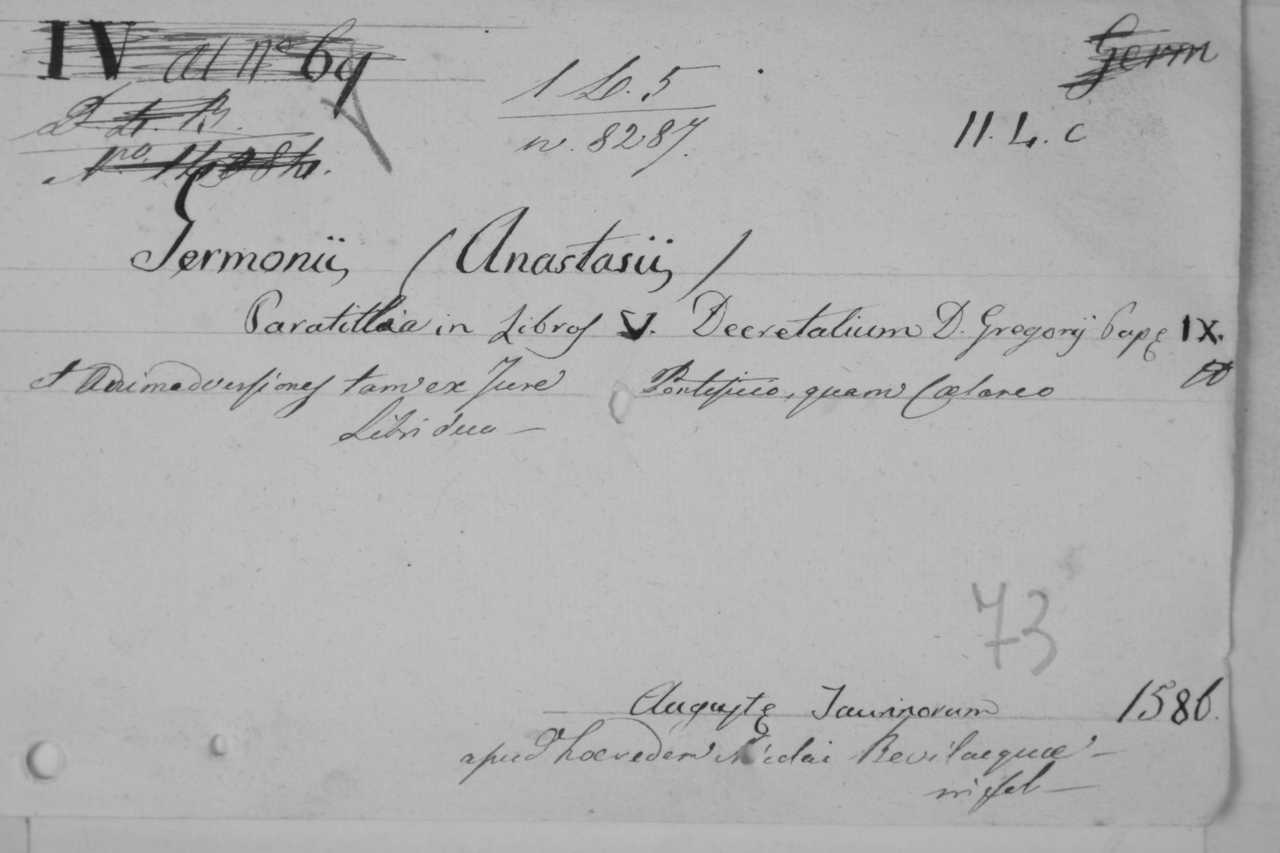 IV al nº 69
1 L. 5
Germ
n. 8287.
II. L. c
Germonii, (Anastasii,)
Paratitlia in Libros V. Decretalium D. Gregorij Papę IX.
et Animadversiones tam ex Jure Pontificio, quam Cæsareo
Libri duo —
73
Augustę Taurinorum 1586.
apud hæredem Nicolai Bevilaquæ —